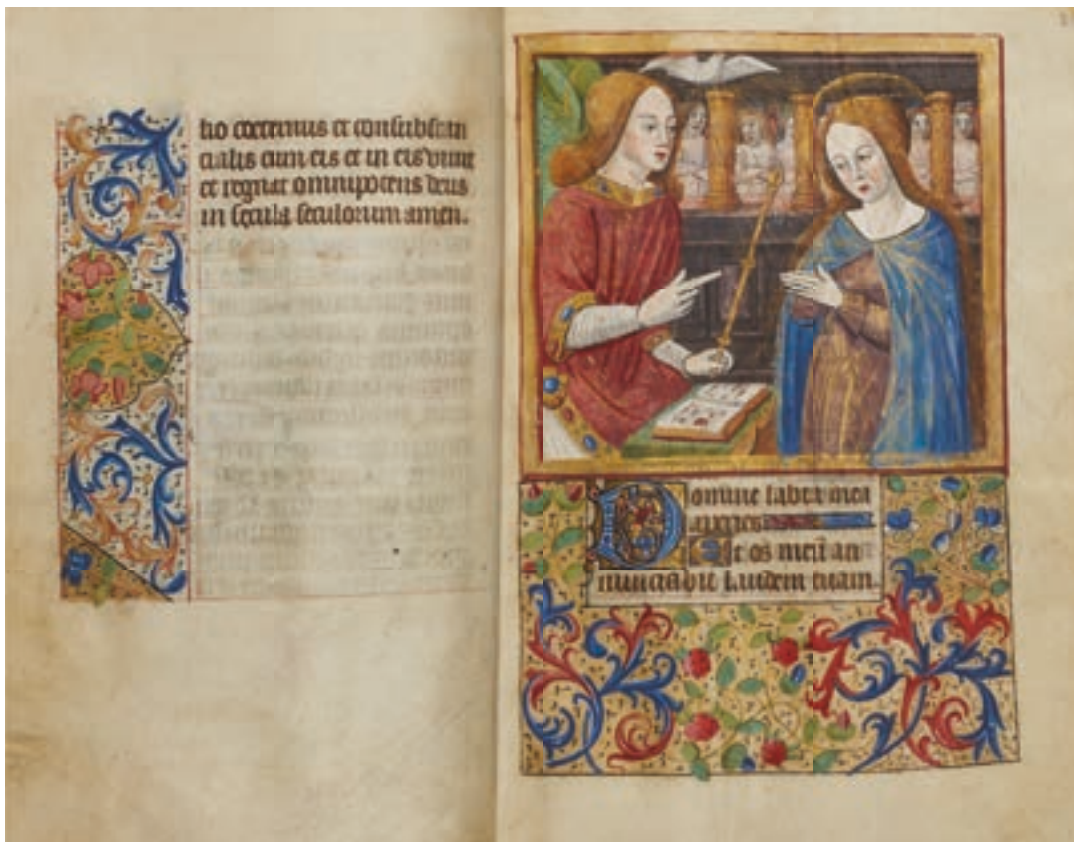 lio coeternus et consubstan
cialis cum eis et in eis vivit
et regnat omnipotens deus
in secula seculorum amen.
Domine labia mea
aperies
Et os meū an
nunciabit laudem tuam.